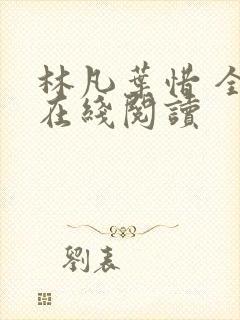 林凡葉惜 全
在綫閱讀
劉表